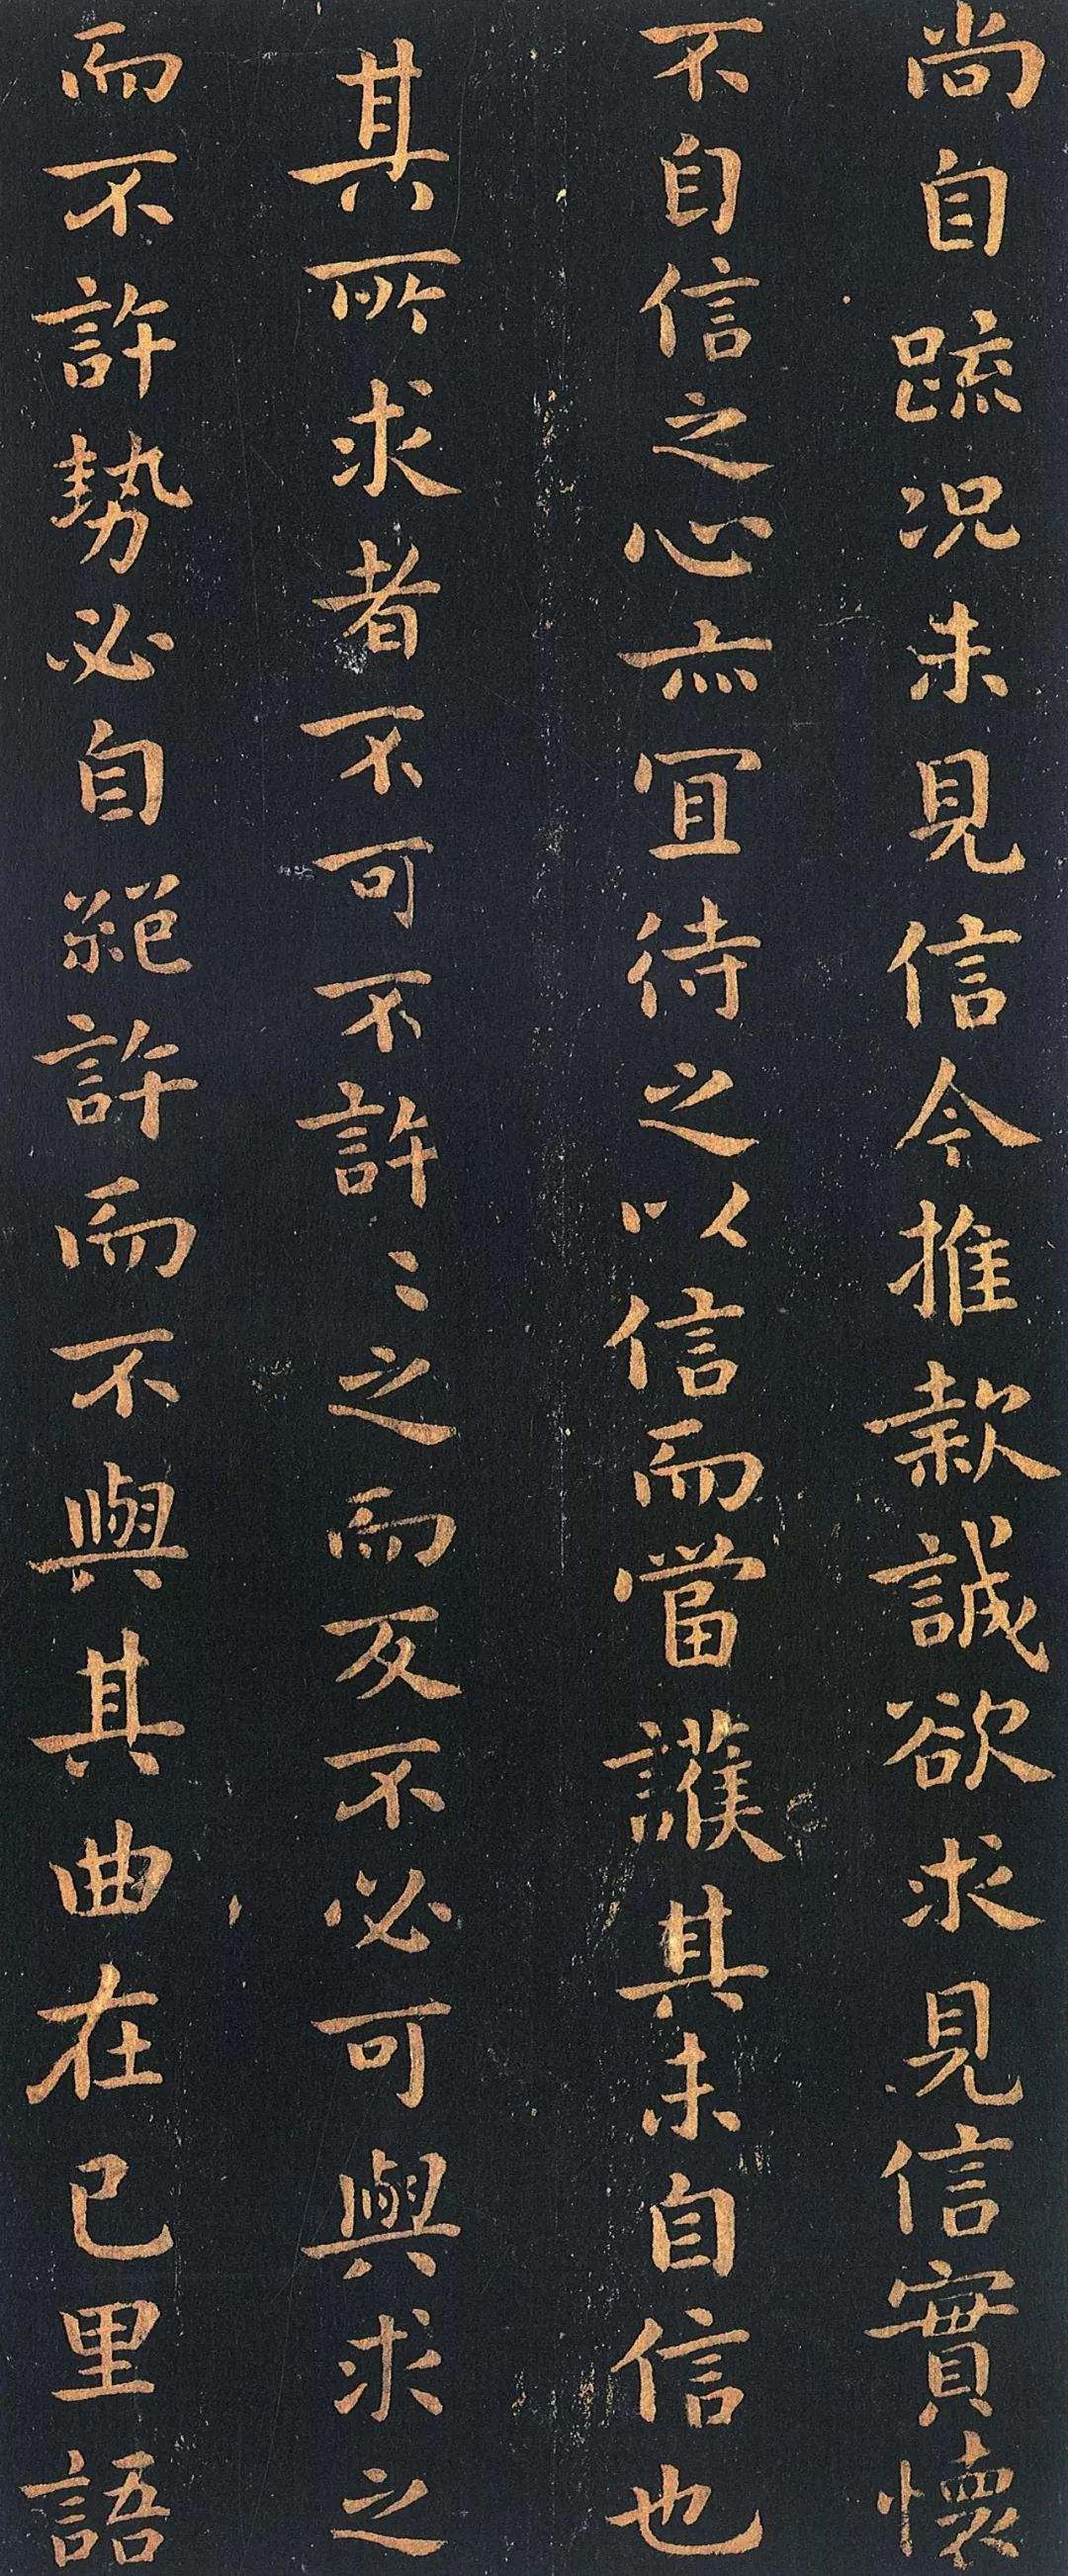 尚自疏况未見信今推款誠欲求見信實懷
不自信之心亦宜待之以信而當護其未自信也
其所求者不可不許〻之而反不必可與求之
而不許勢必自絕許而不與其曲在己里語